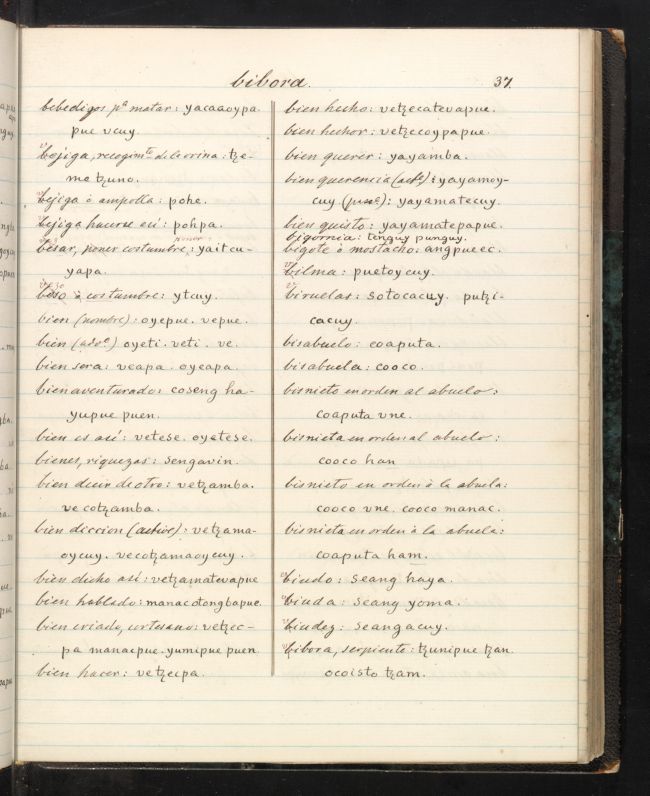 bibora.
37.
bebedizos pª matar: yacaaoypa
pue vcuy.
bejiga, recogimto de la orina: tze-
me tzuno.
bejiga ò ampolla: pohe.
bejiga hacerse así: pohpa.
besar, poner costumbre: yaitcu-
yapa.
beso ò costumbre: ytcuy.
bien (nombre): oyepue. vepue.
bien (adve) oyeti. veti. ve.
bien sera: veapa. oyeapa.
bienaventurado: coseng ha-
yupue puen.
bien es así: vetese. oyetese.
bienes, riquezas: sengavin.
bien decir de otro: vetzamba.
ve cotzamba.
bien diccion (active): vetzama-
oycuy. vecotzamaoycuy.
bien dicho así: vetzamatevapue
bien hablado: manacotongbapue.
bien criado, cortesano: vetzec-
pa manacpue. yumipue puen.
bien hacer: vetzecpa.
bien hecho: vetzecatevapue.
bien hechor: vetzecoypapue.
bien querer: yayamba.
bien querencia (acte): yayamoy-
cuy (pase): yayamatecuy.
bien quisto: yayamatepapue.
bigornia: tenguy punguy.
bigote ò mostacho: angpueec.
bilma: puetoycuy.
biruelas: sotocacuy. putzi-
cacuy.
bisabuelo: coaputa.
bisabuela: cooco.
bisnieto en orden al abuelo:
coaputa vne.
bisnieta en orden al abuelo:
cooco han
bisnieto en orden à la abuela:
cooco vne. cooco manac.
bisnieta en orden à la abuela:
coaputa ham.
biudo: seang haya.
biuda: seang yoma.
biudez: seangacuy.
bibora, serpiente: tzunipue tzan.
ocoisto tzam.